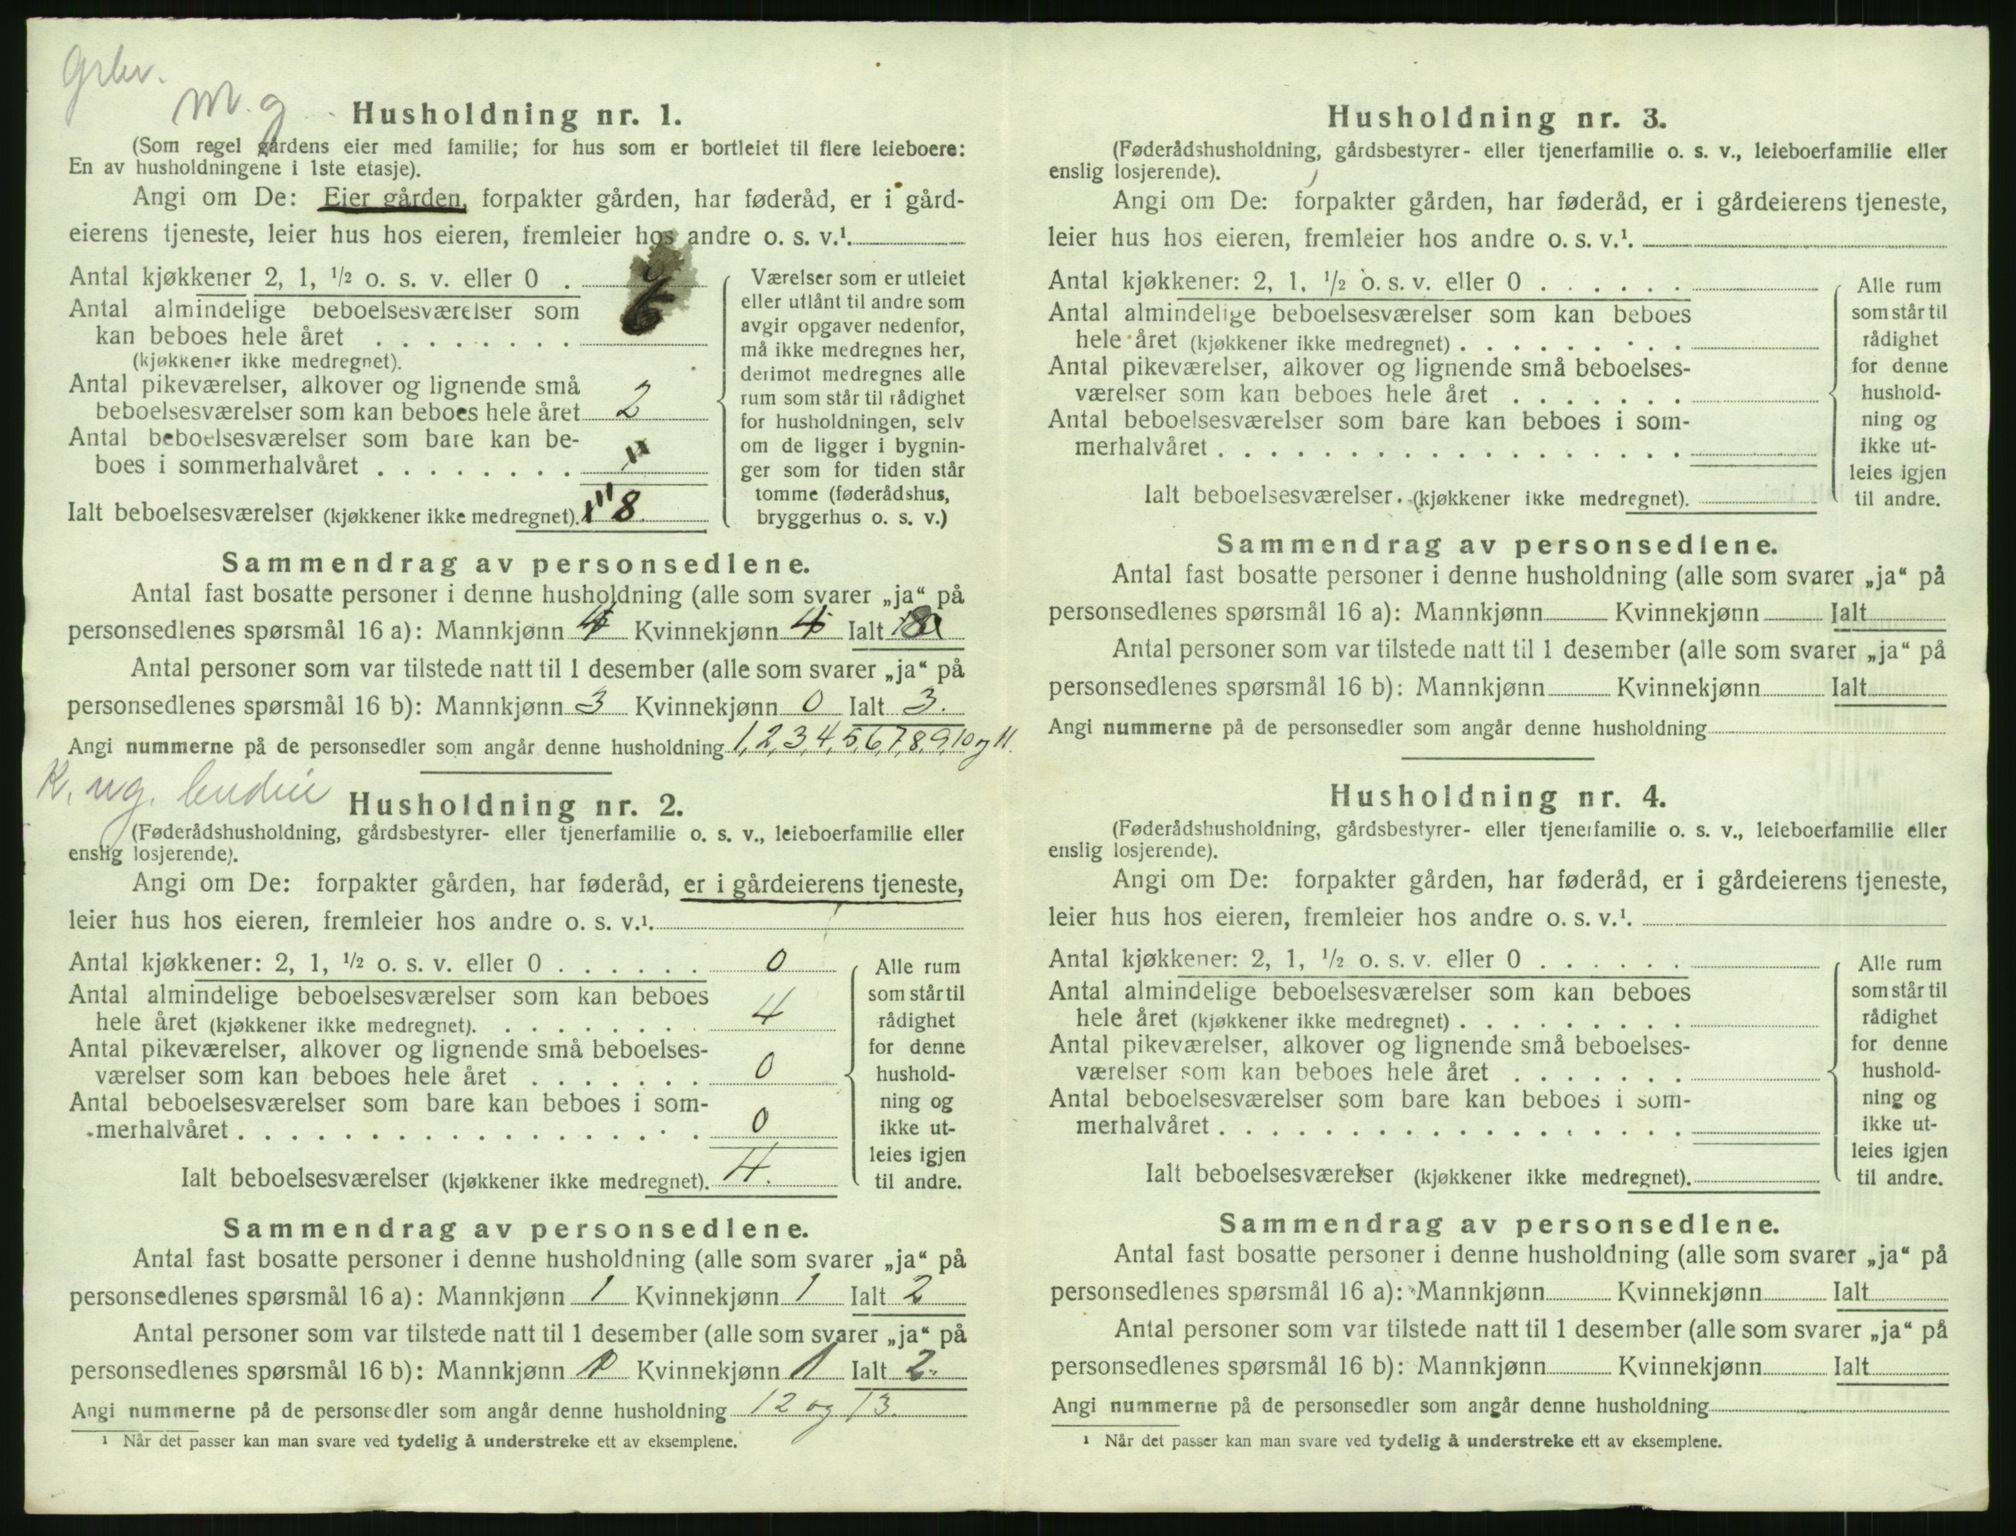 M. g
Husholdning nr. 1.
(Som regel gårdens eier med familie; for hus som er bortleiet til flere leieboere:
En av husholdningene i 1ste etasje).
Angi om De: Eier gården, forpakter gården, har føderåd, er i gård-
eierens tjeneste, leier hus hos eieren, fremleier hos andre o. s. v.¹.
Antal kjøkkener 2, 1, ½ o. s. v. eller 0 .
Antal almindelige beboelsesværelser som
kan beboes hele året . . . . . . . . 6
(kjøkkener ikke medregnet).
Antal pikeværelser, alkover og lignende små
beboelsesværelser som kan beboes hele året 2
Antal beboelsesværelser som bare kan be-
boes i sommerhalvåret . . . . . . . .
Ialt beboelsesværelser (kjøkkener ikke medregnet). 8.
Værelser som er utleiet
eller utlånt til andre som
avgir opgaver nedenfor,
må ikke medregnes her,
derimot medregnes alle
rum som står til rådighet
for husholdningen, selv
om de ligger i bygnin-
ger som for tiden står
tomme (føderådshus,
bryggerhus o. s. v.)
Sammendrag av personsedlene.
Antal fast bosatte personer i denne husholdning (alle som svarer „ja“ på
personsedlenes spørsmål 16 a): Mannkjønn 4 Kvinnekjønn 4 Ialt 8
Antal personer som var tilstede natt til 1 desember (alle som svarer „ja“ på
personsedlenes spørsmål 16 b): Mannkjønn 3 Kvinnekjønn 0 Ialt 3.
Angi nummerne på de personsedler som angår denne husholdning 1,2,3,4,5,6,7,8,9,10 og 11.
K. ug.
Husholdning nr. 2.
(Føderådshusholdning, gårdsbestyrer- eller tjenerfamilie o. s. v., leieboerfamilie eller
enslig losjerende).
Angi om De: forpakter gården, har føderåd, er i gårdeierens tjeneste,
leier hus hos eieren, fremleier hos andre o. s. v.¹.
Antal kjøkkener: 2, 1, ½ o. s. v. eller 0 . . . . . . 0
Antal almindelige beboelsesværelser som kan beboes
hele året (kjøkkener ikke medregnet). . . . . . . . . 4
Antal pikeværelser, alkover og lignende små beboelses-
værelser som kan beboes hele året . . . . . . . 0
Antal beboelsesværelser som bare kan beboes i som-
merhalvåret . . . . . . . . . . . . . . . . . . 0
Ialt beboelsesværelser (kjøkkener ikke medregnet). 4.
Alle rum
som står til
rådighet
for denne
hushold-
ning og
ikke ut-
leies igjen
til andre.
Sammendrag av personsedlene.
Antal fast bosatte personer i denne husholdning (alle som svarer „ja“ på
personsedlenes spørsmål 16 a): Mannkjønn 1 Kvinnekjønn 1 Ialt 2
Antal personer som var tilstede natt til 1 desember (alle som svarer „ja“ på
personsedlenes spørsmål 16 b): Mannkjønn 1 Kvinnekjønn 1 Ialt 2.
Angi nummerne på de personsedler som angår denne husholdning 12 og 13.
¹ Når det passer kan man svare ved tydelig å understreke ett av eksemplene.
Husholdning nr. 3.
(Føderådshusholdning, gårdsbestyrer- eller tjenerfamilie o. s. v., leieboerfamilie eller
enslig losjerende).
Angi om De: forpakter gården, har føderåd, er i gårdeierens tjeneste,
leier hus hos eieren, fremleier hos andre o. s. v.¹.
Antal kjøkkener: 2, 1, ½ o. s. v. eller 0 . . . . . .
Antal almindelige beboelsesværelser som kan beboes
hele året (kjøkkener ikke medregnet) . . . . . . . . .
Antal pikeværelser, alkover og lignende små beboelses-
værelser som kan beboes hele året . . . . . . .
Antal beboelsesværelser som bare kan beboes i som-
merhalvåret . . . . . . . . . . . . . . . . . .
Ialt beboelsesværelser. (kjøkkener ikke medregnet).
Alle rum
som står til
rådighet
for denne
hushold-
ning og
ikke ut-
leies igjen
til andre.
Sammendrag av personsedlene.
Antal fast bosatte personer i denne husholdning (alle som svarer „ja“ på
personsedlenes spørsmål 16 a): Mannkjønn Kvinnekjønn Ialt
Antal personer som var tilstede natt til 1 desember (alle som svarer „ja“ på
personsedlenes spørsmål 16 b): Mannkjønn Kvinnekjønn Ialt
Angi nummerne på de personsedler som angår denne husholdning
Husholdning nr. 4.
(Føderådshusholdning, gårdsbestyrer- eller tjenerfamilie o. s. v., leieboerfamilie eller
enslig losjerende).
Angi om De: forpakter gården, har føderåd, er i gårdeierens tjeneste,
leier hus hos eieren, fremleier hos andre o. s. v.¹.
Antal kjøkkener: 2, 1, ½ o. s. v. eller 0 . . . . . .
Antal almindelige beboelsesværelser som kan beboes
hele året (kjøkkener ikke medregnet) . . . . . . . . .
Antal pikeværelser, alkover og lignende små beboelses-
værelser som kan beboes hele året . . . . . . .
Antal beboelsesværelser som bare kan beboes i som-
merhalvåret . . . . . . . . . . . . . . . . . .
Ialt beboelsesværelser (kjøkkener ikke medregnet).
Alle rum
som står til
rådighet
for denne
hushold-
ning og
ikke ut-
leies igjen
til andre.
Sammendrag av personsedlene.
Antal fast bosatte personer i denne husholdning (alle som svarer „ja“ på
personsedlenes spørsmål 16 a): Mannkjønn Kvinnekjønn Ialt
Antal personer som var tilstede natt til 1 desember (alle som svarer „ja“ på
personsedlenes spørsmål 16 b): Mannkjønn Kvinnekjønn Ialt
Angi nummerne på de personsedler som angår denne husholdning
¹ Når det passer kan man svare ved tydelig å understreke ett av eksemplene.